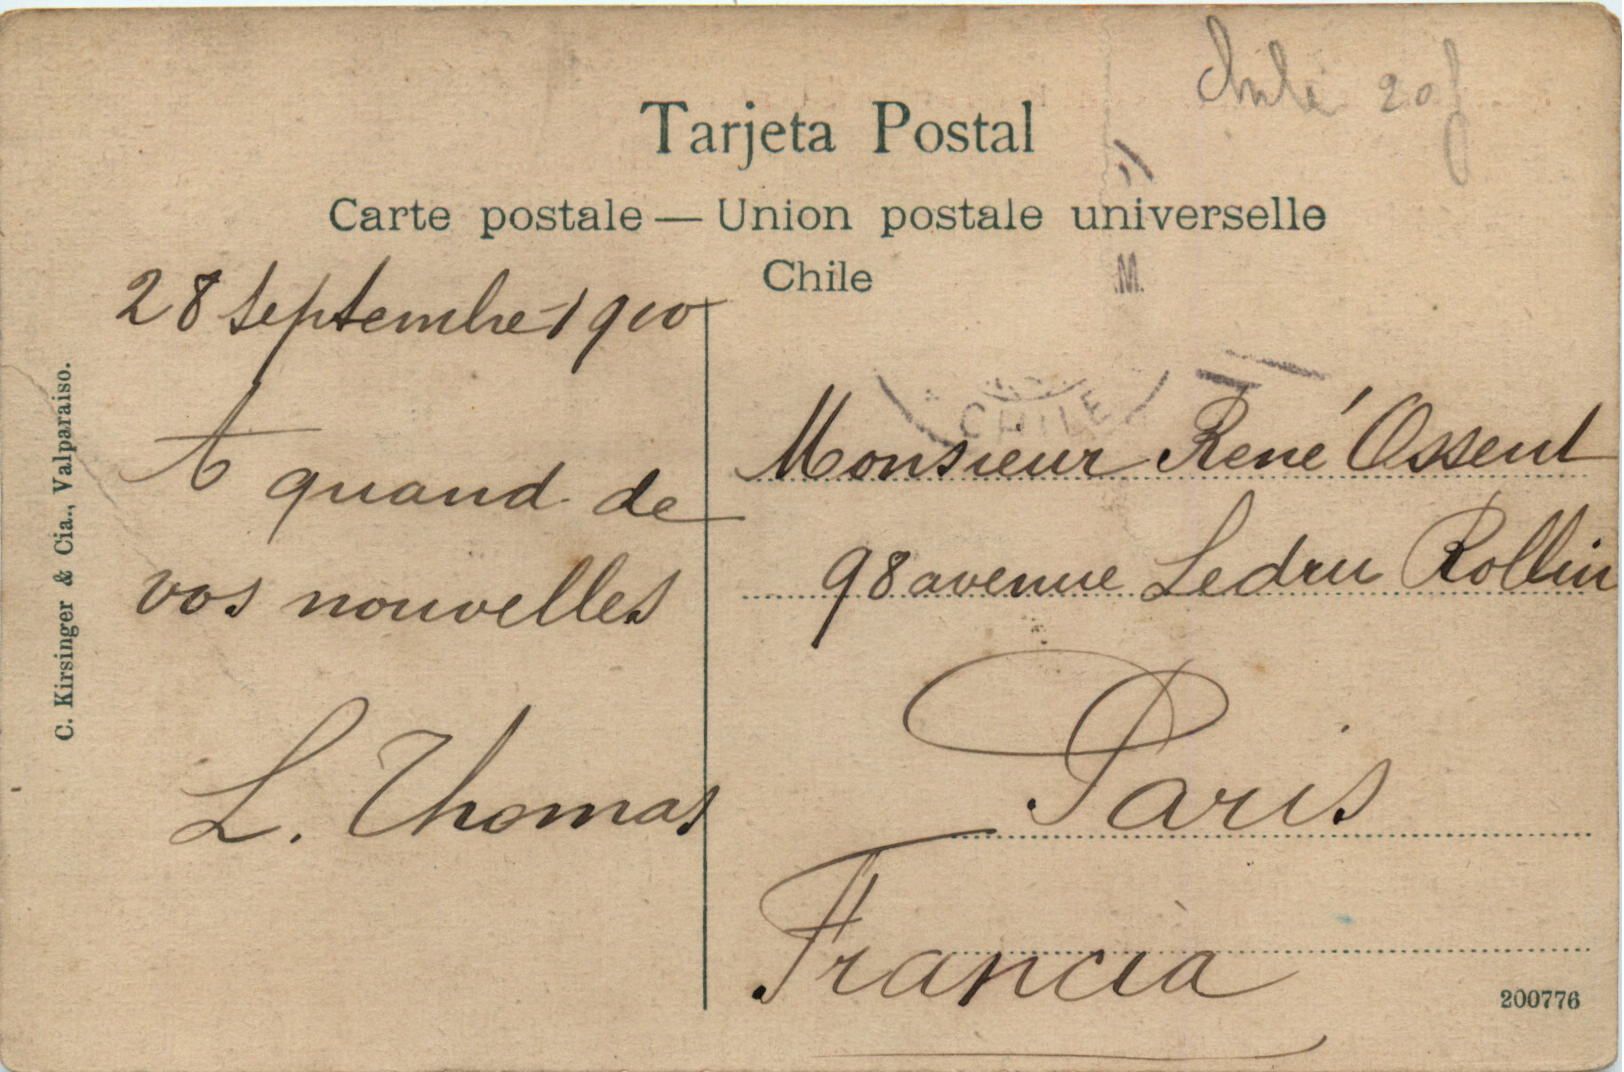 Chile 20f
Tarjeta Postal
Carte postale — Union postale universelle
Chile
28 septembre 1910
A quand de
vos nouvelles
L. Thomas
C. Kirsinger & Cia., Valparaiso.
CHILE
M.
Monsieur René Ossent
98 avenue Ledru Rollin
Paris
Francia
200776